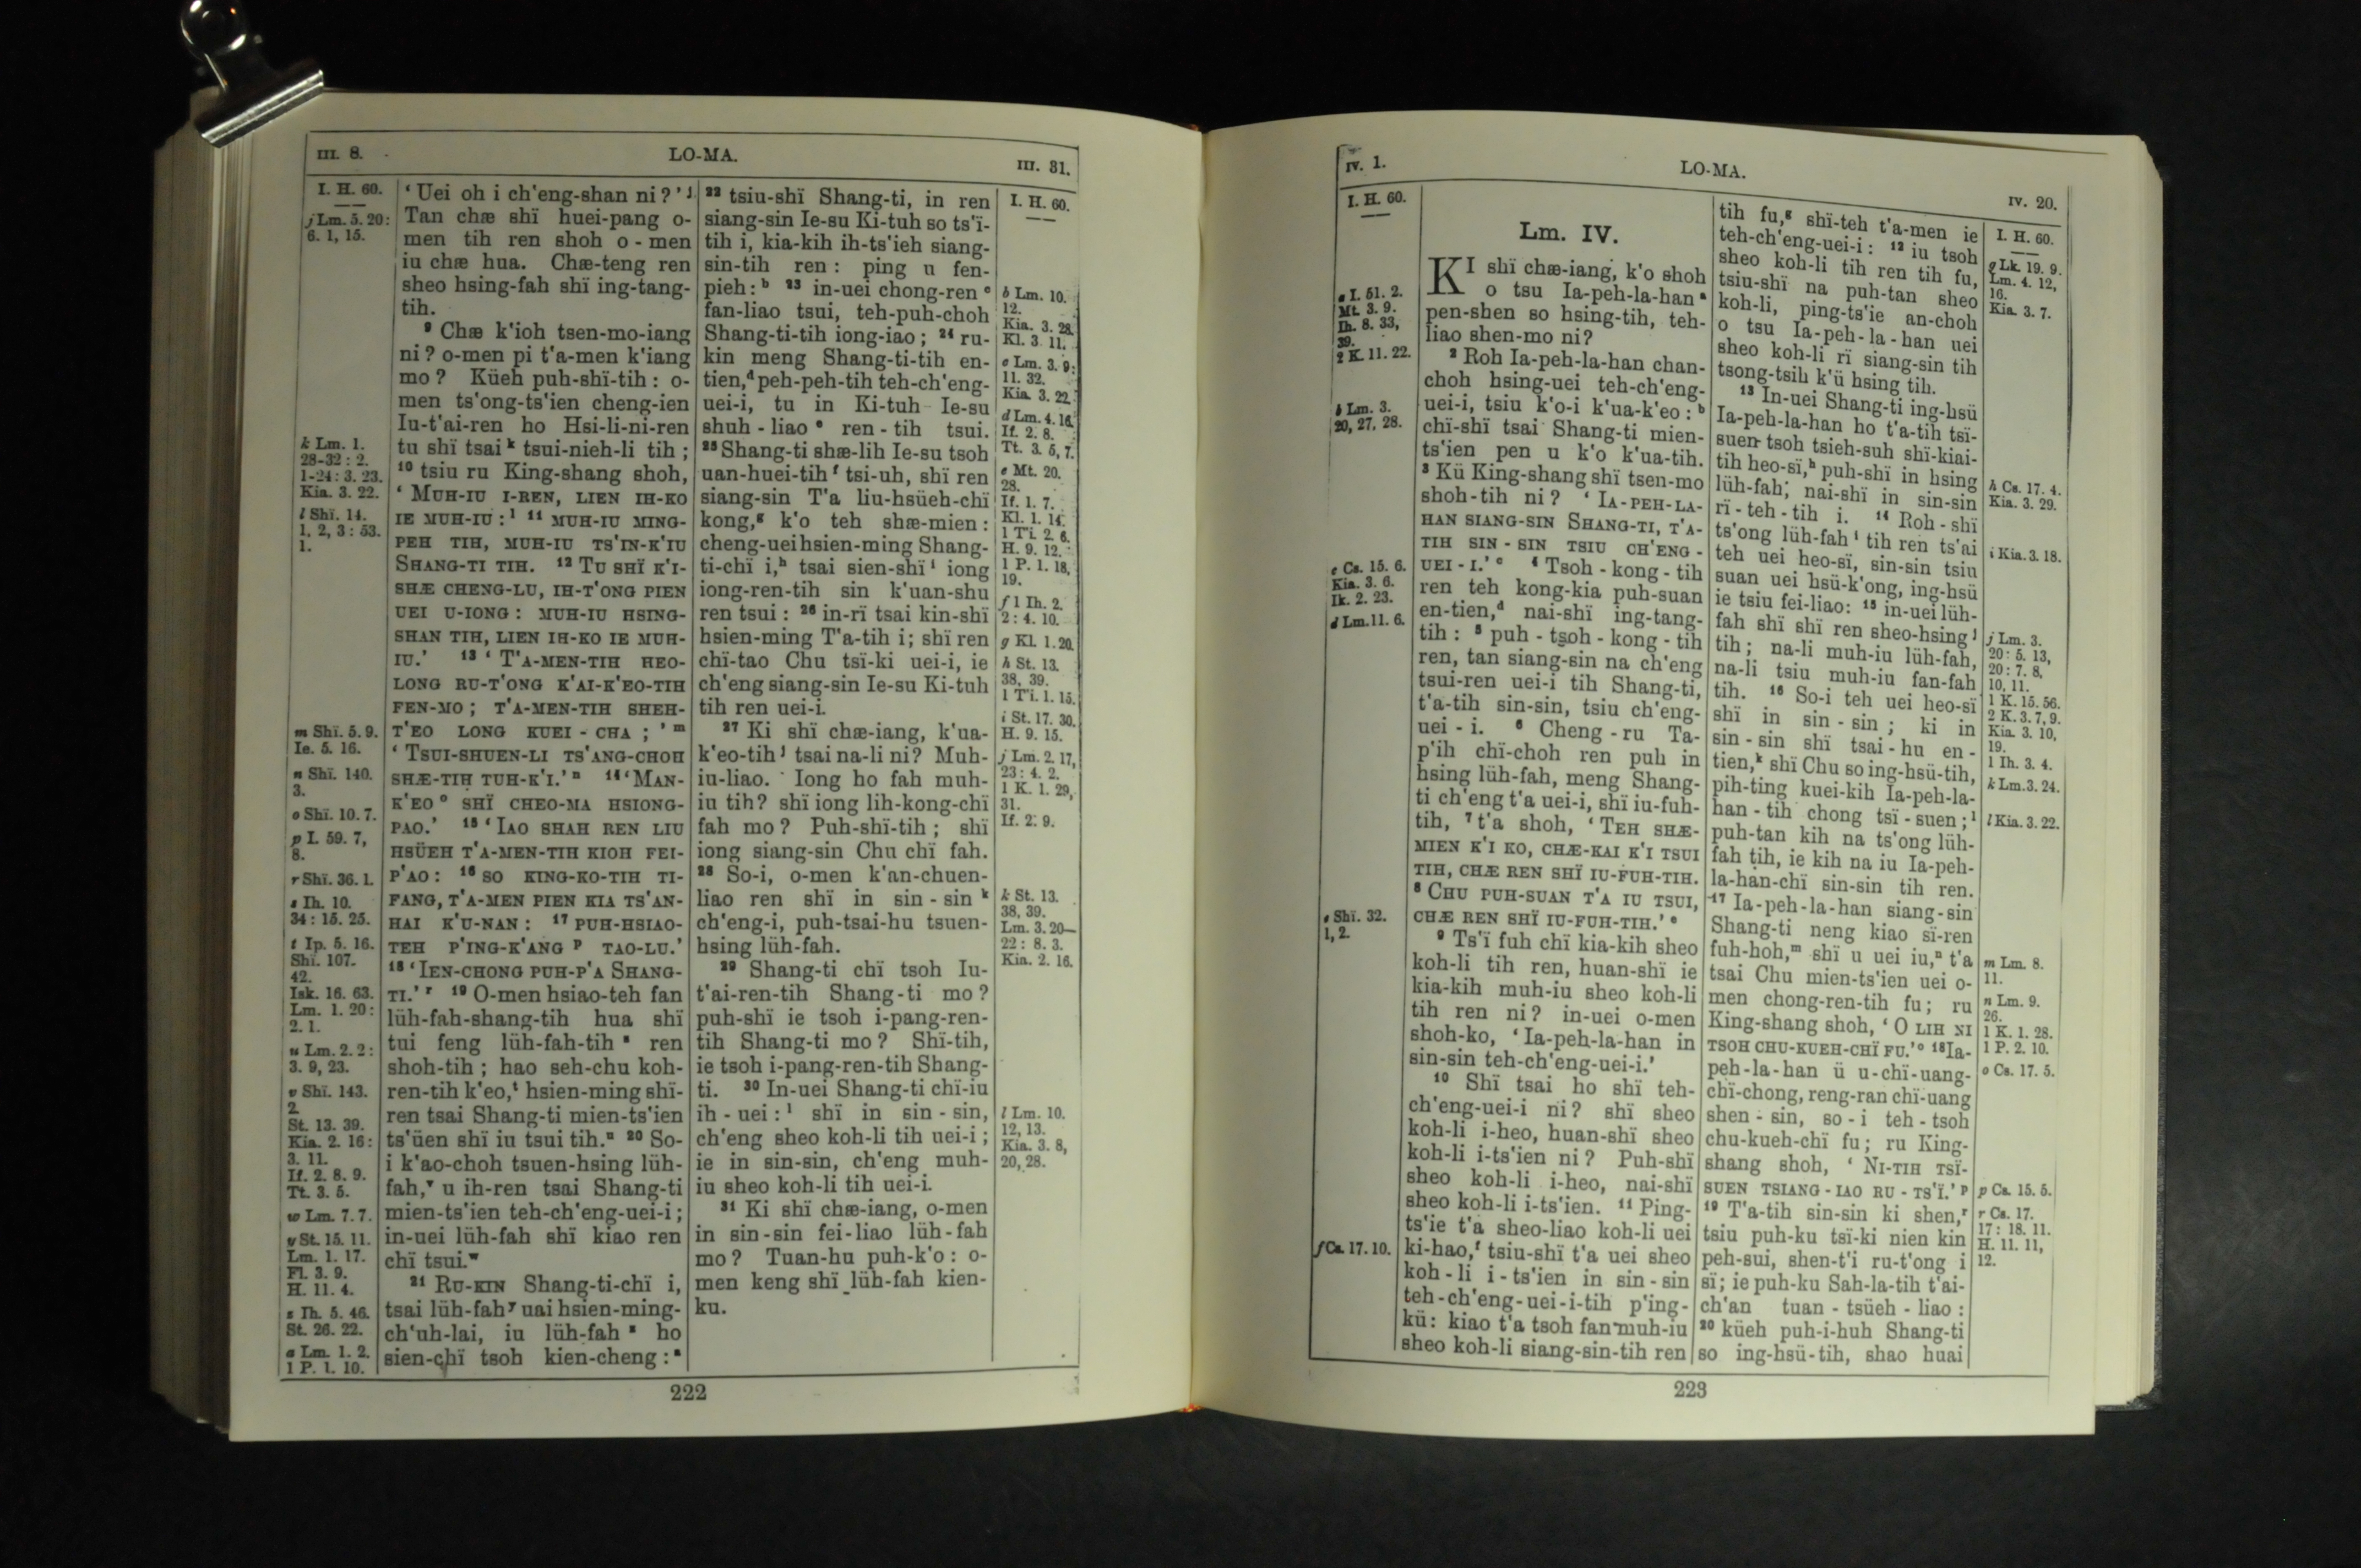 III. 8.
LO-MA.
III. 31.
I. H. 60.
j Lm. 5. 20:
6. 1, 15.
k Lm. 1.
28-32 : 2.
1-24: 3. 23.
Kia. 3. 22.
l Shï. 14.
1, 2, 3 : 53.
1.
m Shï. 5. 9.
Ie. 5. 16.
n Shï. 140.
3.
o Shï. 10. 7.
p I. 59. 7,
8.
r Shï. 36. 1.
s Ih. 10.
34 : 15. 25.
t Ip. 5. 16.
Shï. 107.
42.
Isk. 16. 63.
Lm. 1. 20:
2. 1.
u Lm. 2. 2 :
3. 9, 23.
v Shï. 143.
2.
St. 13. 39.
Kia. 2. 16:
3. 11.
If. 2. 8. 9.
Tt. 3. 5.
w Lm. 7. 7.
y St. 15. 11.
Lm. 1. 17.
Fl. 3. 9.
H. 11. 4.
z Ih. 5. 46.
St. 26. 22.
a Lm. 1. 2.
1 P. 1. 10.
‘Uei oh i ch'eng-shan ni?’ j
Tan chæ shï huei-pang o-
men tih ren shoh o-men
iu chæ hua. Chæ-teng ren
sheo hsing-fah shï ing-tang-
tih.
9 Chæ k'ioh tsen-mo-iang
ni? o-men pi t'a-men k'iang
mo? Küeh puh-shï-tih: o-
men ts'ong-ts'ien cheng-ien
Iu-t'ai-ren ho Hsi-li-ni-ren
tu shï tsai k tsui-nieh-li tih;
10 tsiu ru King-shang shoh,
‘MUH-IU I-REN, LIEN IH-KO
IE MUH-IU: l 11 MUH-IU MING-
PEH TIH, MUH-IU TS'IN-K'IU
SHANG-TI TIH. 12 TU SHÏ K'I-
SHÆ CHENG-LU, IH-T'ONG PIEN
UEI U-IONG: MUH-IU HSING-
SHAN TIH, LIEN IH-KO IE MUH-
IU.’ 13 ‘T'A-MEN-TIH HEO-
LONG RU-T'ONG K'AI-K'EO-TIH
FEN-MO; T'A-MEN-TIH SHEH-
T'EO LONG KUEI-CHA;’ m
‘TSUI-SHUEN-LI TS'ANG-CHOH
SHÆ-TIH TUH-K'I.’ n 14 ‘MAN-
K'EO o SHÏ CHEO-MA HSIONG-
PAO.’ 15 ‘IAO SHAH REN LIU
HSÜEH T'A-MEN-TIH KIOH FEI-
P'AO: 16 SO KING-KO-TIH TI-
FANG, T'A-MEN PIEN KIA TS'AN-
HAI K'U-NAN: 17 PUH-HSIAO-
TEH P'ING-K'ANG p TAO-LU.’
18 ‘IEN-CHONG PUH-P'A SHANG-
TI.’ r 19 O-men hsiao-teh fan
lüh-fah-shang-tih hua shï
tui feng lüh-fah-tih s ren
shoh-tih; hao seh-chu koh-
ren-tih k'eo, t hsien-ming shï-
ren tsai Shang-ti mien-ts'ien
ts'üen shï iu tsui tih. u 20 So-
i k'ao-choh tsuen-hsing lüh-
fah, v u ih-ren tsai Shang-ti
mien-ts'ien teh-ch'eng-uei-i;
in-uei lüh-fah shï kiao ren
chï tsui. w
21 RU-KIN Shang-ti-chï i,
tsai lüh-fah y uai hsien-ming-
ch'uh-lai, iu lüh-fah z ho
sien-chï tsoh kien-cheng: a
22 tsiu-shï Shang-ti, in ren
siang-sin Ie-su Ki-tuh so ts'ï-
tih i, kia-kih ih-ts'ieh siang-
sin-tih ren: ping u fen-
pieh: b 23 in-uei chong-ren c
fan-liao tsui, teh-puh-choh
Shang-ti-tih iong-iao; 24 ru-
kin meng Shang-ti-tih en-
tien, d peh-peh-tih teh-ch'eng-
uei-i, tu in Ki-tuh Ie-su
shuh-liao e ren-tih tsui.
25 Shang-ti shæ-lih Ie-su tsoh
uan-huei-tih f tsi-uh, shï ren
siang-sin T'a liu-hsüeh-chï
kong, g k'o teh shæ-mien:
cheng-uei hsien-ming Shang-
ti-chï i, h tsai sien-shï i iong
iong-ren-tih sin k'uan-shu
ren tsui: 26 in-rï tsai kin-shï
hsien-ming T'a-tih i; shï ren
chï-tao Chu tsï-ki uei-i, ie
ch'eng siang-sin Ie-su Ki-tuh
tih ren uei-i.
27 Ki shï chæ-iang, k'ua-
k'eo-tih j tsai na-li ni? Muh-
iu-liao. Iong ho fah muh-
iu tih? shï iong lih-kong-chï
fah mo? Puh-shï-tih; shï
iong siang-sin Chu chï fah.
28 So-i, o-men k'an-chuen-
liao ren shï in sin-sin k
ch'eng-i, puh-tsai-hu tsuen-
hsing lüh-fah.
29 Shang-ti chï tsoh Iu-
t'ai-ren-tih Shang-ti mo?
puh-shï ie tsoh i-pang-ren-
tih Shang-ti mo? Shï-tih,
ie tsoh i-pang-ren-tih Shang-
ti. 30 In-uei Shang-ti chï-iu
ih-uei: l shï in sin-sin,
ch'eng sheo koh-li tih uei-i;
ie in sin-sin, ch'eng muh-
iu sheo koh-li tih uei-i.
31 Ki shï chæ-iang, o-men
in sin-sin fei-liao lüh-fah
mo? Tuan-hu puh-k'o: o-
men keng shï lüh-fah kien-
ku.
I. H. 60.
b Lm. 10.
12.
Kia. 3. 28.
Kl. 3. 11.
c Lm. 3. 9:
11. 32.
Kia. 3. 22.
d Lm. 4. 16.
If. 2. 8.
Tt. 3. 5, 7.
e Mt. 20.
28.
If. 1. 7.
Kl. 1. 14.
1 Ti. 2. 6.
H. 9. 12.
1 P. 1. 18,
19.
f 1 Ih. 2.
2 : 4. 10.
g Kl. 1. 20.
h St. 13.
38, 39.
1 Ti. 1. 15.
i St. 17. 30.
H. 9. 15.
j Lm. 2. 17,
23 : 4. 2.
1 K. 1. 29,
31.
If. 2. 9.
k St. 13.
38, 39.
Lm. 3. 20—
22 : 8. 3.
Kia. 2. 16.
l Lm. 10.
12, 13.
Kia. 3. 8,
20, 28.
222
IV. 1.
LO-MA.
IV. 20.
I. H. 60.
a I. 51. 2.
Mt. 3. 9.
Ih. 8. 33,
39.
2 K. 11. 22.
b Lm. 3.
20, 27, 28.
c Cs. 15. 6.
Kia. 3. 6.
Ik. 2. 23.
d Lm. 11. 6.
e Shï. 32.
1, 2.
f Cs. 17. 10.
Lm. IV.
KI shï chæ-iang, k'o shoh
o tsu Ia-peh-la-han a
pen-shen so hsing-tih, teh-
liao shen-mo ni?
2 Roh Ia-peh-la-han chan-
choh hsing-uei teh-ch'eng-
uei-i, tsiu k'o-i k'ua-k'eo: b
chï-shï tsai Shang-ti mien-
ts'ien pen u k'o k'ua-tih.
3 Kü King-shang shï tsen-mo
shoh-tih ni? ‘IA-PEH-LA-
HAN SIANG-SIN SHANG-TI, T'A-
TIH SIN-SIN TSIU CH'ENG-
UEI-I.’ c 4 Tsoh-kong-tih
ren teh kong-kia puh-suan
en-tien, d nai-shï ing-tang-
tih: 5 puh-tsoh-kong-tih
ren, tan siang-sin na ch'eng
tsui-ren uei-i tih Shang-ti,
t'a-tih sin-sin, tsiu ch'eng-
uei-i. 6 Cheng-ru Ta-
p'ih chï-choh ren puh in
hsing lüh-fah, meng Shang-
ti ch'eng t'a uei-i, shï iu-fuh-
tih, 7 t'a shoh, ‘TEH SHÆ-
MIEN K'I KO, CHÆ-KAI K'I TSUI
TIH, CHÆ REN SHÏ IU-FUH-TIH.
8 CHU PUH-SUAN T'A IU TSUI,
CHÆ REN SHÏ IU-FUH-TIH.’ e
9 Ts'ï fuh chï kia-kih sheo
koh-li tih ren, huan-shï ie
kia-kih muh-iu sheo koh-li
tih ren ni? in-uei o-men
shoh-ko, ‘Ia-peh-la-han in
sin-sin teh-ch'eng-uei-i.’
10 Shï tsai ho shï teh-
ch'eng-uei-i ni? shï sheo
koh-li i-heo, huan-shï sheo
koh-li i-ts'ien ni? Puh-shï
sheo koh-li i-heo, nai-shï
sheo koh-li i-ts'ien. 11 Ping-
ts'ie t'a sheo-liao koh-li uei
ki-hao, f tsiu-shï t'a uei sheo
koh-li i-ts'ien in sin-sin
teh-ch'eng-uei-i-tih p'ing-
kü: kiao t'a tsoh fan muh-iu
sheo koh-li siang-sin-tih ren
tih fu, g shï-teh t'a-men ie
teh-ch'eng-uei-i: 12 iu tsoh
sheo koh-li tih ren tih fu,
tsiu-shï na puh-tan sheo
koh-li, ping-ts'ie an-choh
o tsu Ia-peh-la-han uei
sheo koh-li rï siang-sin tih
tsong-tsih k'ü hsing tih.
13 In-uei Shang-ti ing-hsü
Ia-peh-la-han ho t'a-tih tsï-
suen tsoh tsieh-suh shï-kiai-
tih heo-sï, h puh-shï in hsing
lüh-fah; nai-shï in sin-sin
rï-teh-tih i. 14 Roh-shï
ts'ong lüh-fah i tih ren ts'ai
teh uei heo-sï, sin-sin tsiu
suan uei hsü-k'ong, ing-hsü
ie tsiu fei-liao: 15 in-uei lüh-
fah shï shï ren sheo-hsing j
tih; na-li muh-iu lüh-fah,
na-li tsiu muh-iu fan-fah
tih. 16 So-i teh uei heo-sï
shï in sin-sin; ki in
sin-sin shï tsai-hu en-
tien, k shï Chu so ing-hsü-tih,
pih-ting kuei-kih Ia-peh-la-
han-tih chong tsï-suen; l
puh-tan kih na ts'ong lüh-
fah tih, ie kih na iu Ia-peh-
la-han-chï sin-sin tih ren.
17 Ia-peh-la-han siang-sin
Shang-ti neng kiao sï-ren
fuh-hoh, m shï u uei iu, n t'a
tsai Chu mien-ts'ien uei o-
men chong-ren-tih fu; ru
King-shang shoh, ‘O LIH NI
TSOH CHU-KUEH-CHÏ FU.’ o 18 Ia-
peh-la-han ü u-chï-uang-
chï-chong, reng-ran chï-uang
shen-sin, so-i teh-tsoh
chu-kueh-chï fu; ru King-
shang shoh, ‘NI-TIH TSÏ-
SUEN TSIANG-IAO RU-TS'Ï.’ p
19 T'a-tih sin-sin ki shen, r
tsiu puh-ku tsï-ki nien kin
peh-sui, shen-t'i ru-t'ong i
sï; ie puh-ku Sah-la-tih t'ai-
ch'an tuan-tsüeh-liao:
20 küeh puh-i-huh Shang-ti
so ing-hsü-tih, shao huai
I. H. 60.
g Lk. 19. 9.
Lm. 4. 12,
16.
Kia. 3. 7.
h Cs. 17. 4.
Kia. 3. 29.
i Kia. 3. 18.
j Lm. 3.
20 : 5. 13,
20 : 7. 8,
10, 11.
1 K. 15. 56.
2 K. 3. 7, 9.
Kia. 3. 10,
19.
1 Ih. 3. 4.
k Lm. 3. 24.
l Kia. 3. 22.
m Lm. 8.
11.
n Lm. 9.
26.
1 K. 1. 28.
1 P. 2. 10.
o Cs. 17. 5.
p Cs. 15. 5.
r Cs. 17.
17 : 18. 11.
H. 11. 11,
12.
223